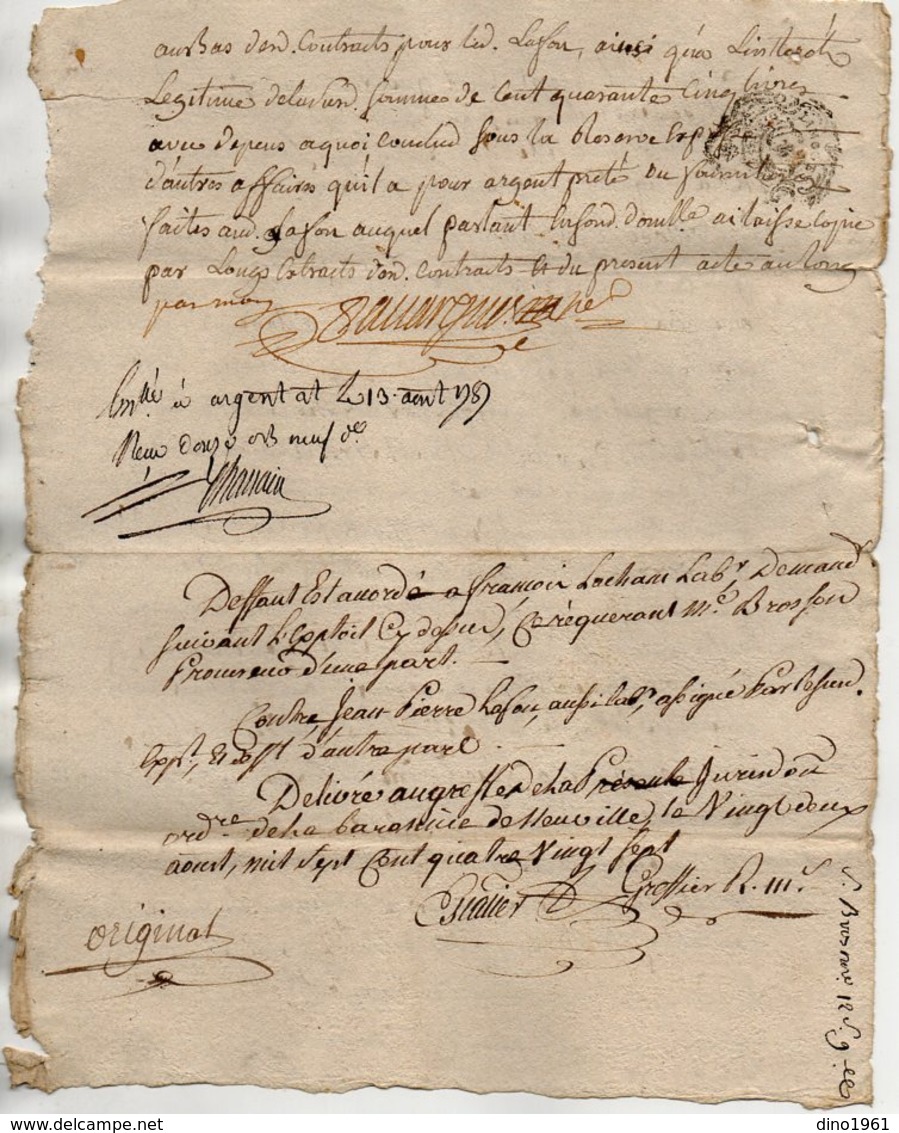 au bas dend. Contracts pour led. Lafon, ainsi qu'a L'interêt
Legitime de lasusd. somme de Cent quarante Cinq livres
avec depens a quoi conclud sous la Reserve
d'autres affaires qu'il a pour argent preté ou fourniture
faites aud. Lafon auquel parlant En sond. domlle. ai laissé copie
par Longs Extraits dend. contracts Et du present acte au long
par moy
Conllé à argentat le 13 aout 1787
Reçu douze s neuf de.
Deffaut Est accordé a françois Locham Labr. Demandr.
suivant l'Exploit Cy dessus, Ce réquerant Me. Brosson
Procureur d'une part.
Contre, Jean Pierre Lafon, aussi labr. assigné Par lesusd.
Expt., Et defft. d'autre part.
Delivré au greffe de la Présente Juridon
ordre. de la baronnie de Neuville, le Vingt deux
aoust, mil sept Cent quatre Vingt sept
Greffier R. ms.
original
12 s. 9
dino1961